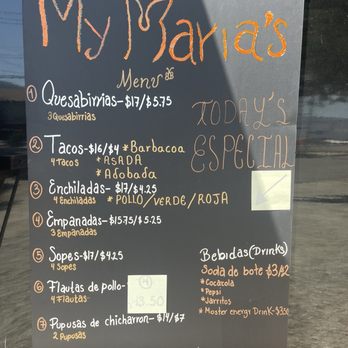 My Maria's
Menu
① Quesabirrias-$17/$5.75
3 Quesabirrias
TODAY'S
ESPECIAL
② Tacos-$16/$4 *Barbacoa
4 Tacos *ASADA
*Adobada
③ Enchiladas-$17/$4.25
4 Enchiladas *POLLO/VERDE/ROJA
④ Empanadas-$15.75/$5.25
3 Empanadas
⑤ Sopes-$17/$4.25
4 Sopes
⑥ Flautas de pollo-
4 Flautas
(4)
13.50
⑦ Pupusas de chicharron-$14/$7
2 Pupusas
Bebidas(Drinks)
Soda de bote $3/12
*Cocacola
*Pepsi
*Jarritos
*Moster energy Drink-$3.50